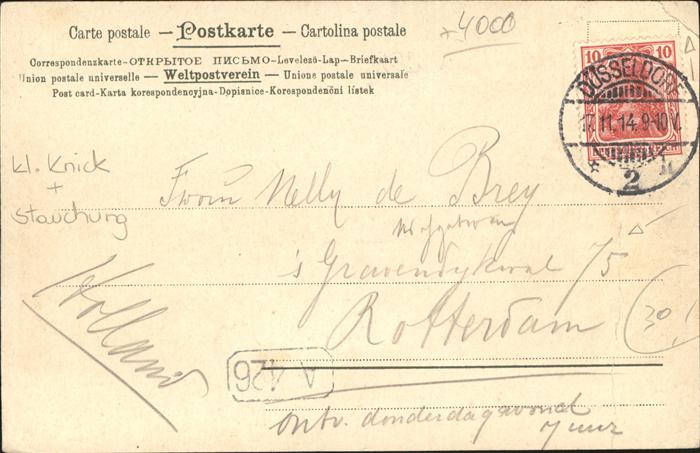 *4000
Carte postale — Postkarte — Cartolina postale
Correspondenzkarte-ОТКРЫТОЕ ПИСЬМО-Levelező-Lap-Briefkaart
Union postale universelle — Weltpostverein — Unione postale universale
Post card-Karta korespondencyjna-Dopisnice-Korespondenční lístek
10 10
DÜSSELDORF
17.11.14.9-10V.
* 2
kl. Knick
+
Stauchung
Frau Nelly de Brey
's Gravendykwal 75
Rotterdam
Holland
30
A 426
ontv. donderdagavond
7 uur